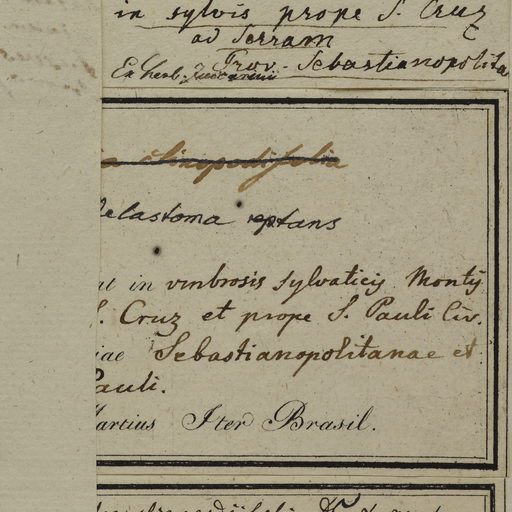 in sylvis prope S. Cruz
ad Serram
Prov. Sebastianopolita
Ex herb. Zuccarinii
clinopodifolia
elastoma reptans
at in vmbrosis sylvaticis Montij
S. Cruz et prope S. Pauli Civ.
iae Sebastianopolitanae et
Pauli.
Martius Iter Brasil.